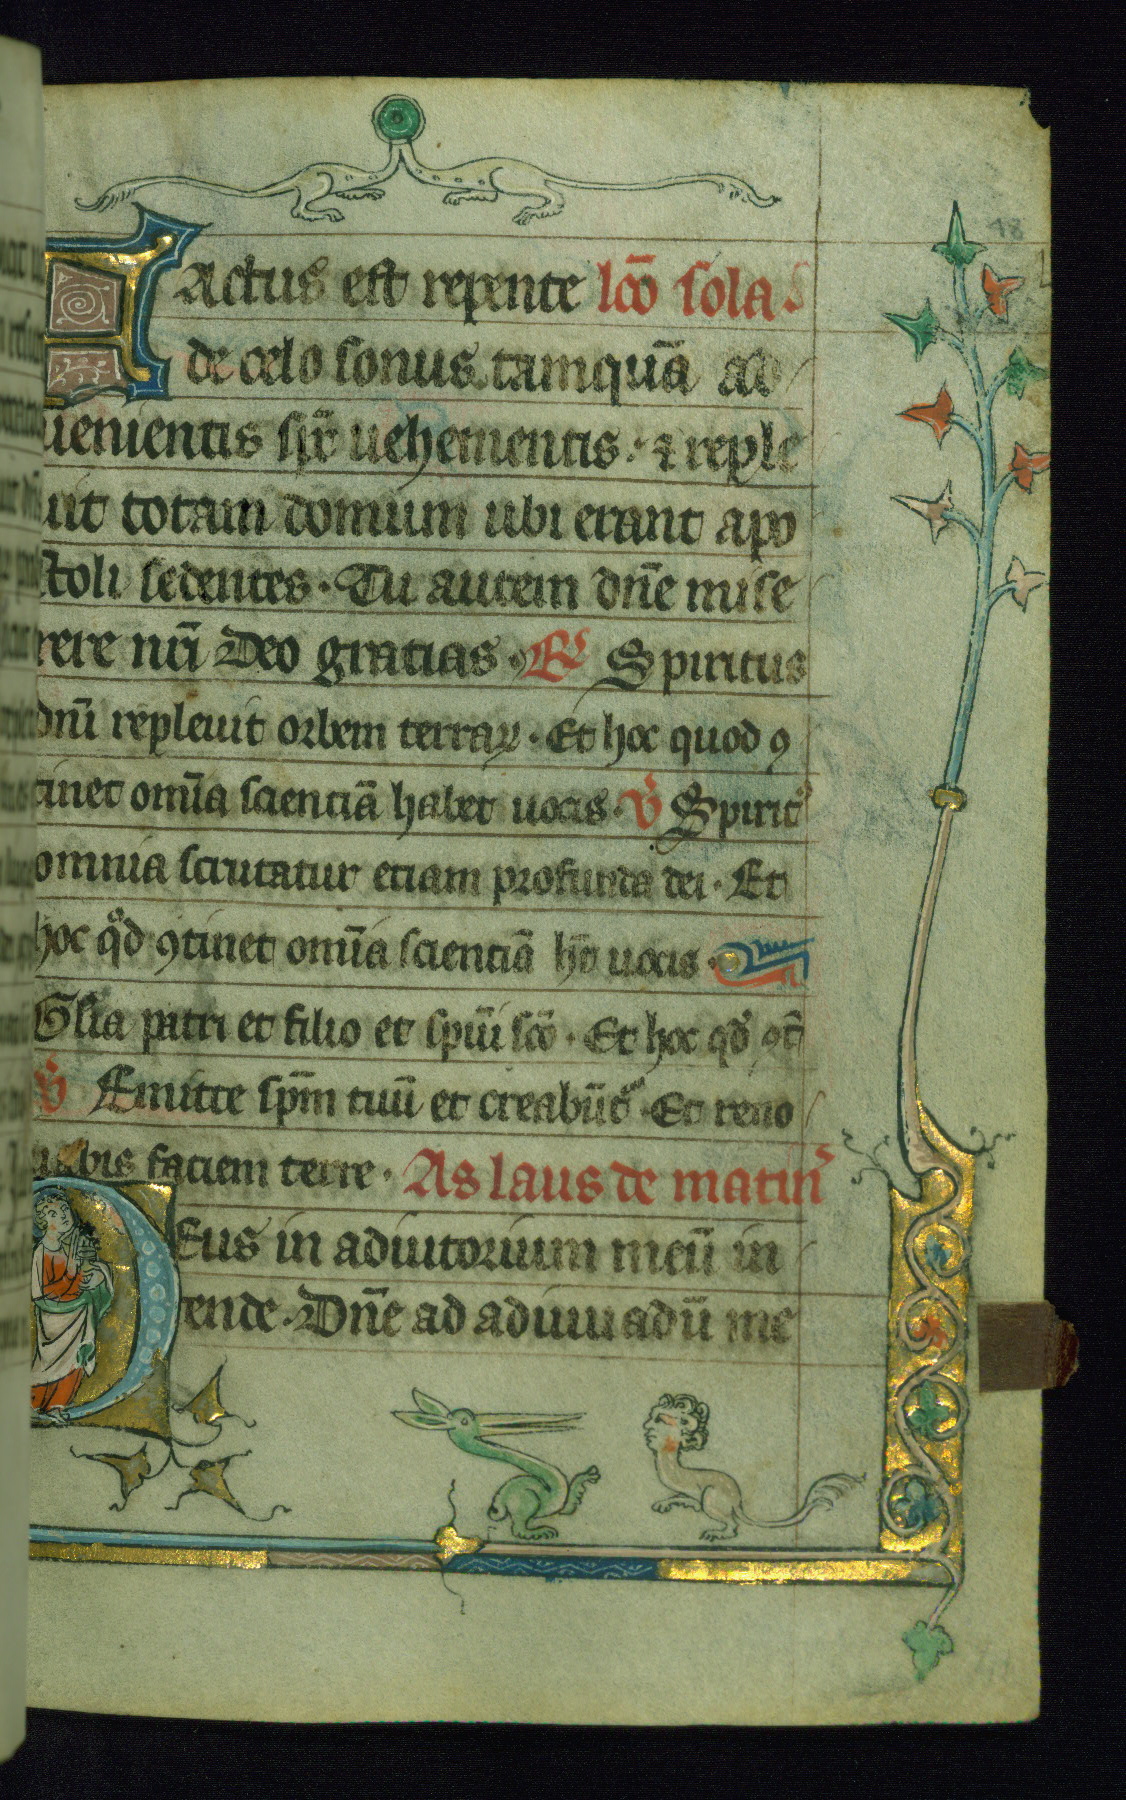 FActus est repente lc̄o sola
de celo sonus tamquā ad
uenientis sp̄r uehementis. ⁊ reple
uit totam domum ubi erant apo
stoli sedentes. Tu autem dn̄e mise
rere nr̄i Deo gratias. R Spiritus
dn̄i repleuit orbem terraꝝ. Et hoc quod ꝯ
tinet om̄ia scientiā habet uocis. V Spirit᾿
omnia scrutatur etiam profunda dei. Et
hoc qͦd ꝯtinet om̄ia scientiā h̄t uocis.
Gl̄ia patri et filio et spūi sc̄o. Et hoc qd̄ ꝯt̄
V Emitte sp̄m tuū et creabūt᾿. Et reno
uabis faciem terre. As laus de matin᾿
DEus in adiutorium meū in
tende. Dn̄e ad adiuuādū me
18